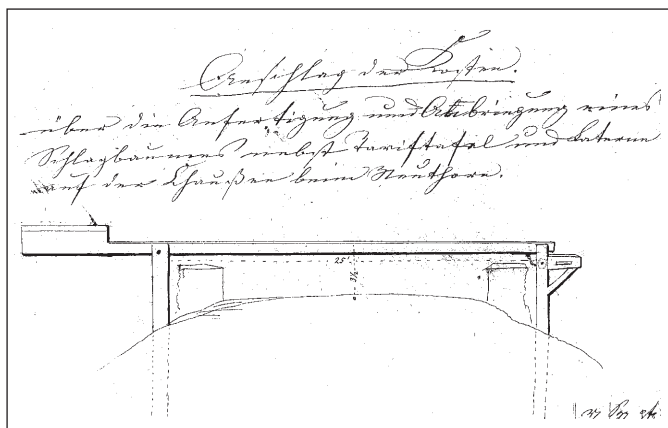 Anschlag der Kosten.
über die Anfertigung und Anbringung eines
Schlagbaumes nebst Tariftafel und Laterne
auf der Chaußee beim Neuthore.
25'
3½